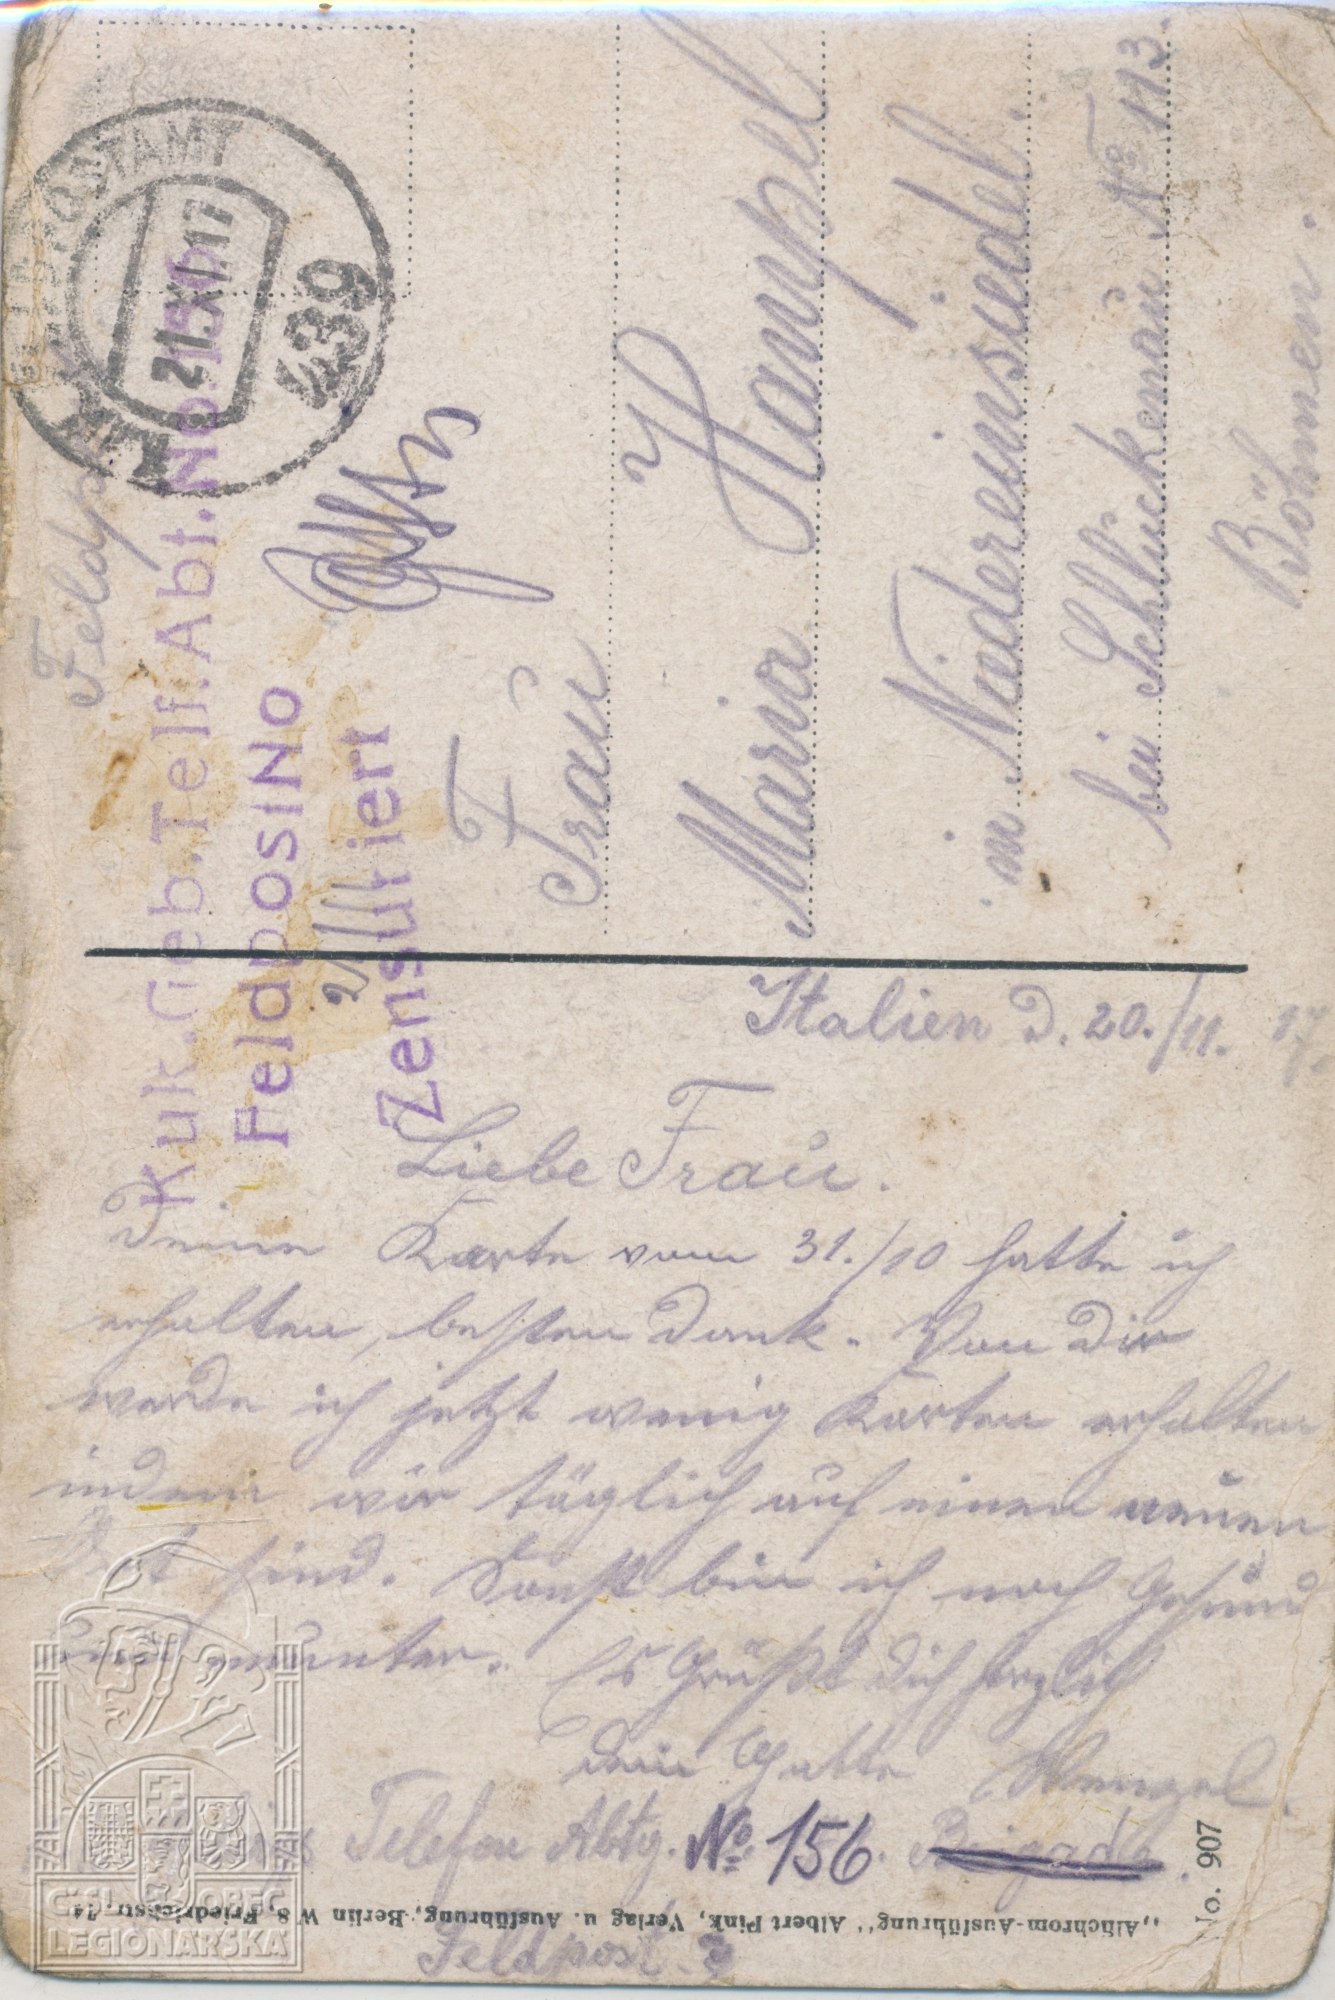 Feldp
K.u.k. Geb. Telf. Abt. No. 156
FeldpostNo
Zensuriert
K.u.K. FELDPOSTAMT
21.XI.17
439
Frau
Maria Hampel
in Niedereinsiedel.
bei Schluckenau No 113.
Böhmen.
Italien d. 20./11. 17.
Liebe Frau.
Deine Karte vom 31./10 hatte ich
erhalten, besten Dank. Von Dir
werde ich jetzt wenig Karten erhalten
indem wir täglich auf einen neuen
Ort sind. Sonst bin ich noch Gesund
und munter. Es Grüßt dich herzlich
dein Gatte Wenzel.
Telefon Abtg. No. 156. Brigade.
Feldpost
No. 907
„Alfichrom-Ausführung" Albert Pink, Verlag u. Ausführung, Berlin W 8, Friedrichstr. 74
ČsOL
OBEC
LEGIONÁŘSKÁ